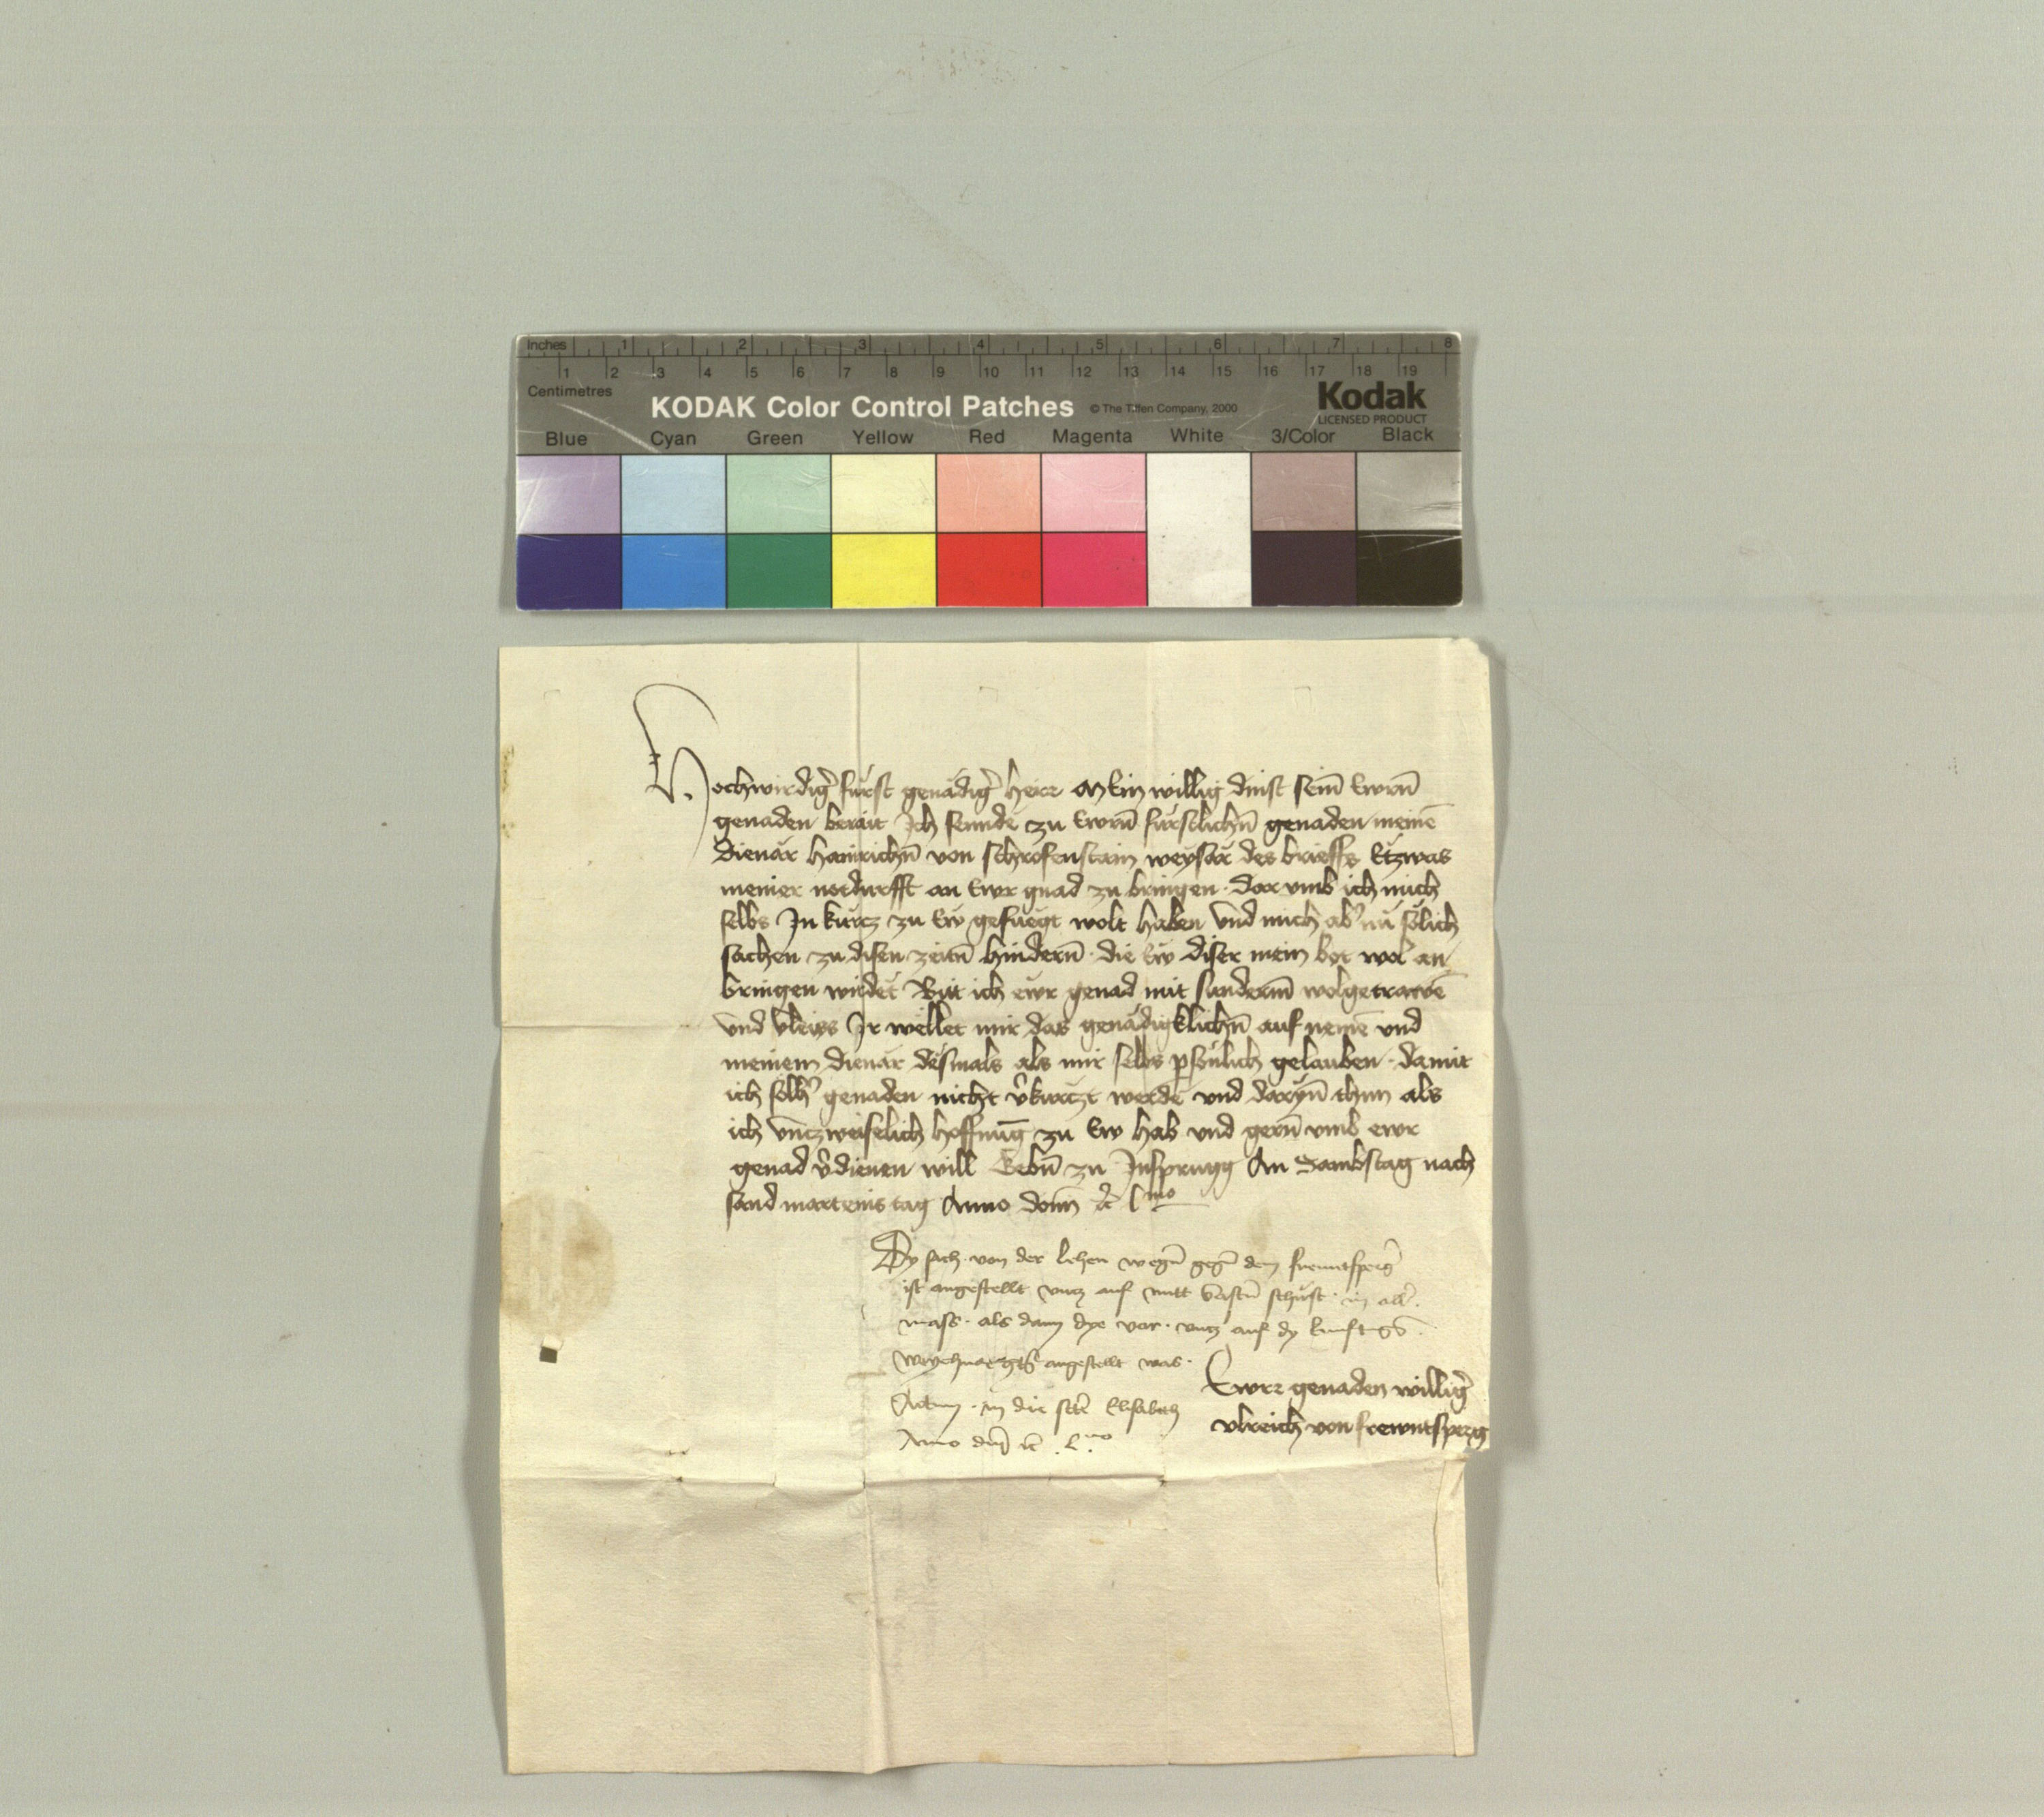 inches 1 2 3 4 5 6 7 8
1 2 3 4 5 6 7 8 9 10 11 12 13 14 15 16 17 18 19
Centimetres
KODAK Color Control Patches © The Tiffen Company, 2000 Kodak
LICENSED PRODUCT
Blue Cyan Green Yellow Red Magenta White 3/Color Black
Hochwirdiḡ fürst genädiḡ herr Mein willig dinst sein̄ Ewrn̄
genaden berait Ich sennde zu Ewrn̄ fürstlichn̄ genaden meinē
dienär Hainrichn̄ von Schrofenstain weysär des brieffs Etzwas
meiner notdurfft an Ewr gnad zu bringen · dar vmb ich mich
selbs In kurcz zu Ew gefuegt wolt haben Vnd mich ab̄ nů sölich
sachen zu disen zeitn̄ hindern̄ · die Ew diser mein bot wol an
bringen wirdet Bitt ich ewr genad mit sunderm̄ wolgetrawē
vnd vleiss Ir wellet mir das genädigklichn̄ auf nemē vnd
meinem dienär desmals als mir selbs p̱sönlich gelauben · damit
ich solh̄ genaden nicht v̄kurczt werde vnd daryn̄ thun als
ich vn̄czweifelich hoffnūg zu Ew hab vnd gern̄ vmb ewr
genad v̄dienen will Gebn̄ zu Insprugg Am Sambstag nach
sand marteins tag Anno dom̄ ꝛc̄ lmo
Dy sach · von der lehen wegn̄ gegn̄ dem frewntsperḡ
ist angestellt vncz auf mitt vastn̄ schirist · in all̄
mass · als dann dye vor · vncz auf dy kunftign̄
angestellt was ·
Actum · in die scē Elisabeth
Anno dn̄i ꝛc̄ · l · mo
Ewrr genaden williḡ
vlreich von frewntsperg